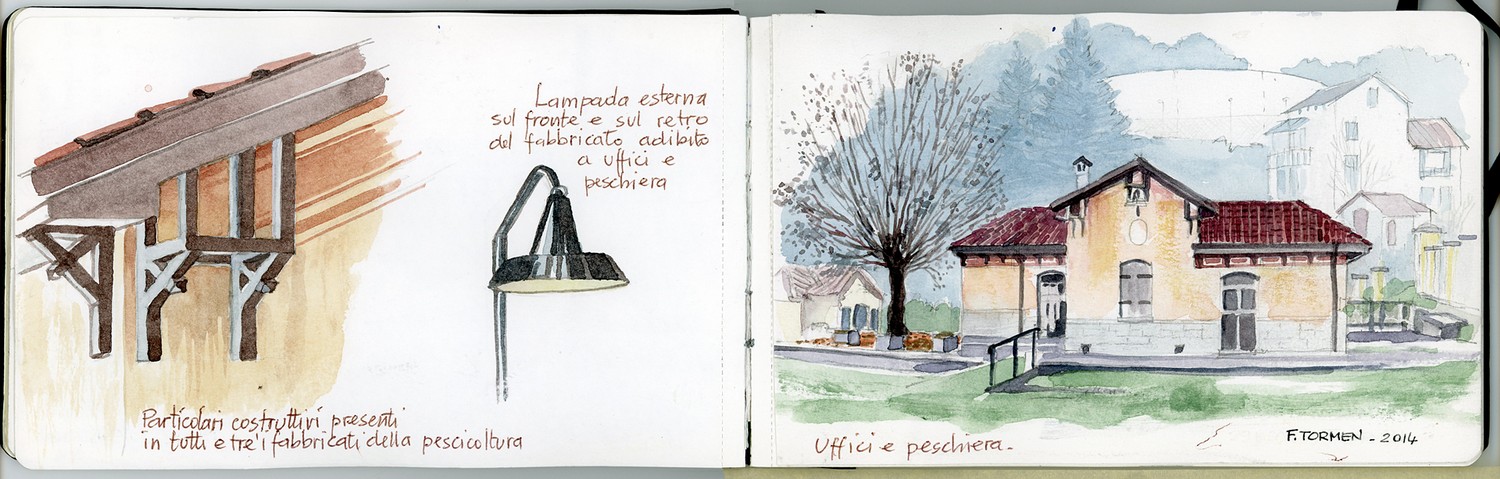 Lampada esterna
sul fronte e sul retro
del fabbricato adibito
a uffici e
peschiera
Particolari costruttivi presenti
in tutti e tre i fabbricati della pescicoltura
Uffici e peschiera.
F. TORMEN - 2014